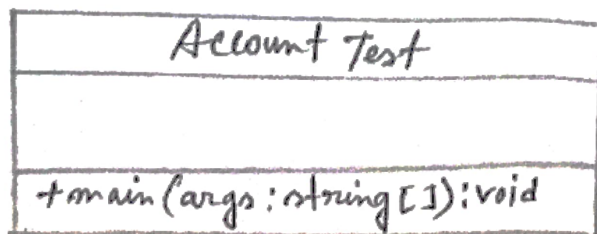 Account Test
+main(args:string[]):void